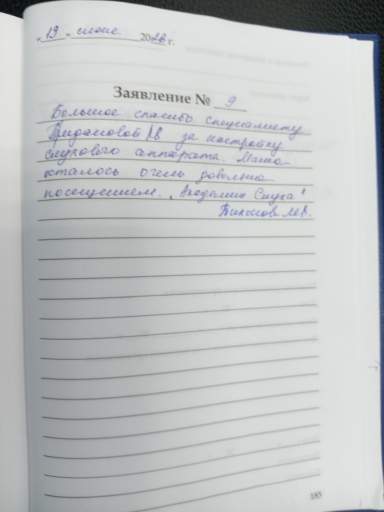 « 19 » июне 2026 г.
Заявление № 9
Большое спасибо специалисту
за настройку
слухового аппарата. Мама
осталась очень довольна
посещением „Академии Слуха"
185